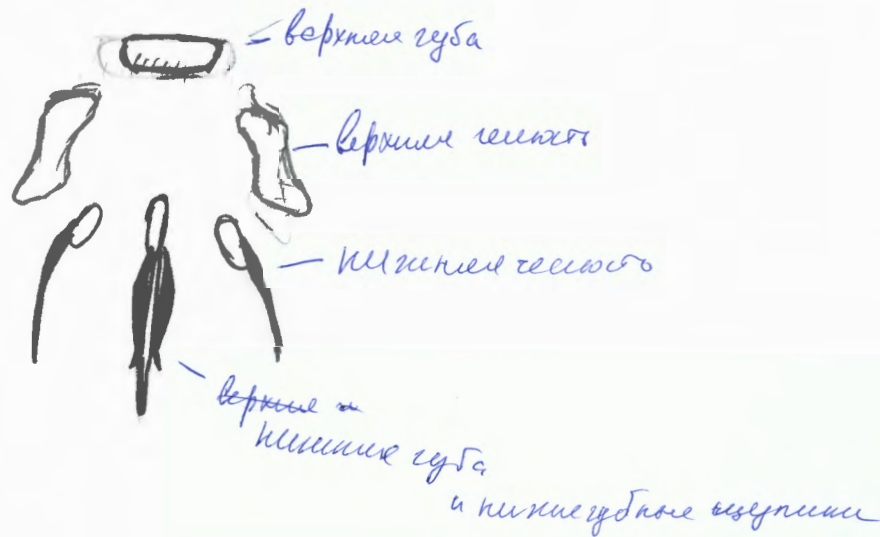 верхняя губа
верхняя челюсть
нижняя челюсть
верхняя и
нижняя губа
и нижнегубные щупики